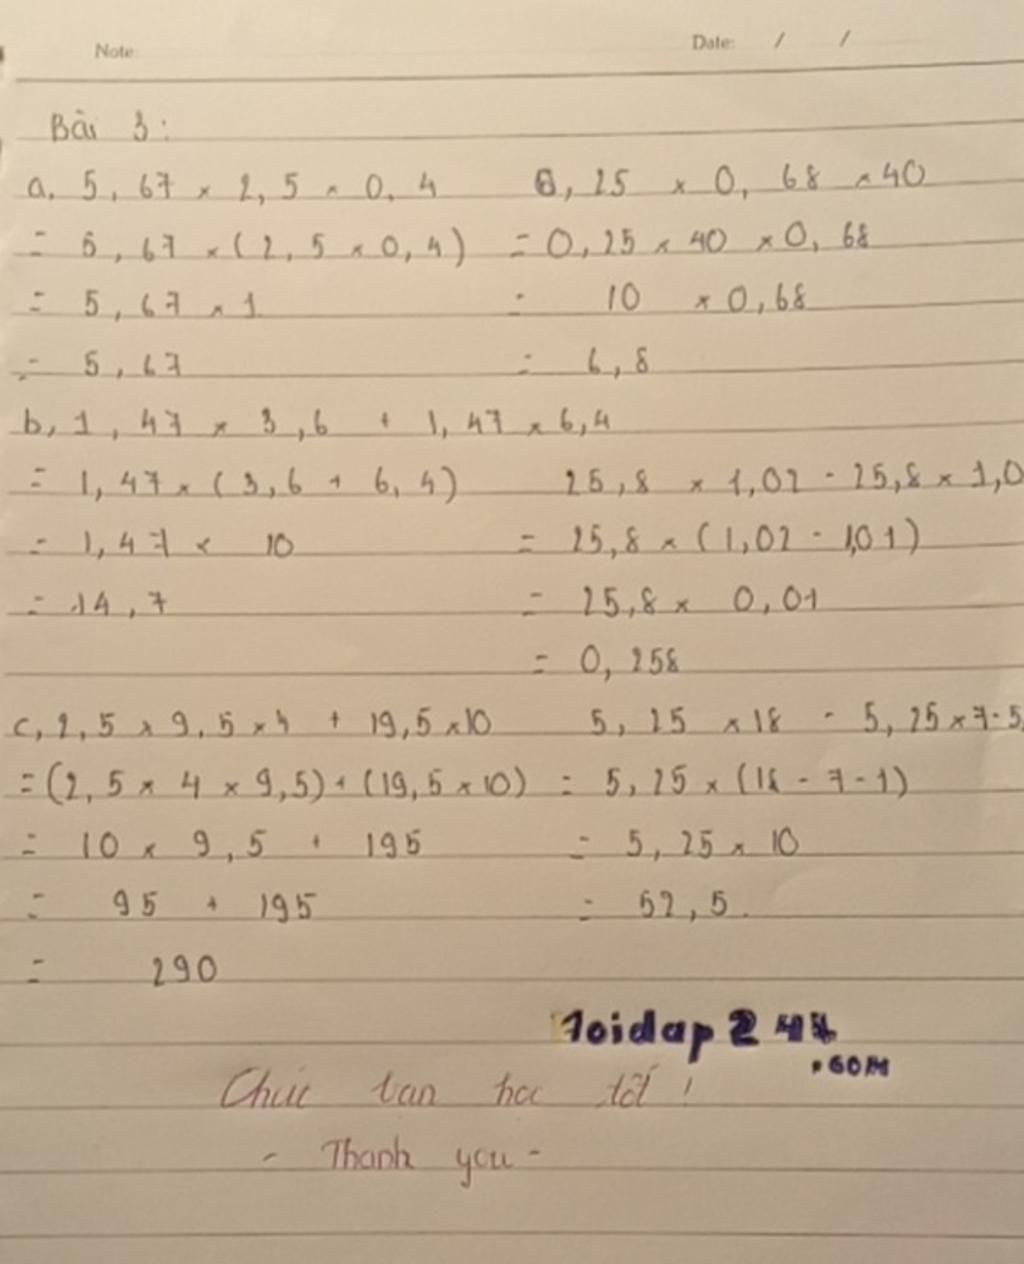 Note: Date: / /
Bài 3:
a. 5,67 × 2,5 × 0,4 0,25 × 0,68 × 40
= 5,67 × (2,5 × 0,4) = 0,25 × 40 × 0,68
= 5,67 × 1 = 10 × 0,68
= 5,67 = 6,8
b, 1,47 × 3,6 + 1,47 × 6,4
= 1,47 × (3,6 + 6,4) 25,8 × 1,02 - 25,8 × 1,0
= 1,47 × 10 = 25,8 × (1,02 - 1,01)
= 14,7 = 25,8 × 0,01
= 0,258
c, 2,5 × 9,5 × 4 + 19,5 × 10 5,25 × 18 - 5,25 × 7 - 5,
= (2,5 × 4 × 9,5) + (19,5 × 10) = 5,25 × (18 - 7 - 1)
= 10 × 9,5 + 195 = 5,25 × 10
= 95 + 195 = 52,5.
= 290
hoidap247
.com
Chúc bạn học tốt!
- Thank you -